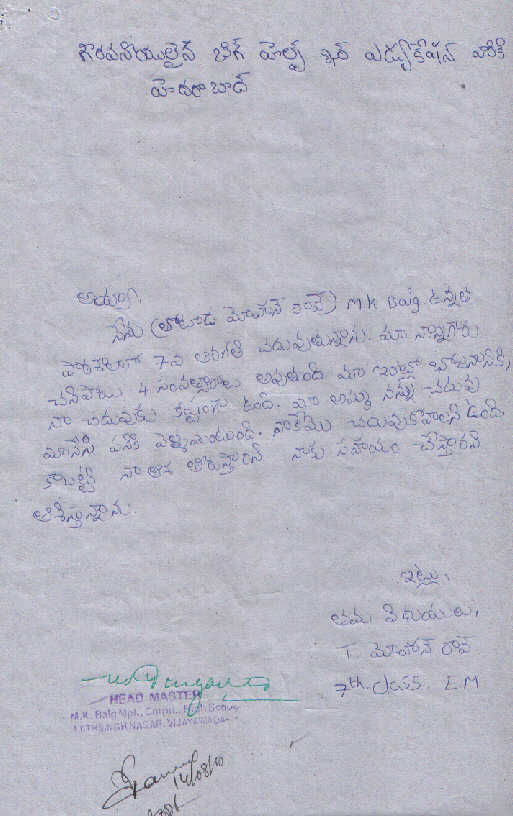 గౌరవనీయులైన బిగ్ హెల్ప్ ఫర్ ఎడ్యుకేషన్ వారికి
హైదరాబాద్
అయ్యా,
నేను మోహన్ రావ్) M K Baig ఉన్నత
పాఠశాలలో 7వ తరగతి చదువుతున్నాను. మా నాన్నగారు
చనిపోయి 4 సంవత్సరాలు అవుతుంది మా ఇంట్లో భోజనానికి,
నా చదువుకు కష్టంగా ఉంది. మా అమ్మ నన్ను చదువు
మానేసి పనికి వెళ్ళమంటుంది. నాకేమో చదువుకోవాలని ఉంది.
కాబట్టి నా ఆశ తీరుస్తారని నాకు సహాయం చేస్తారని
ఆశిస్తున్నాను.
ఇట్లు,
తమ విధేయులు,
T. మోహన్ రావ్
7th క్లాస్ E M
HEAD MASTER
M.K. Baig Mpl., Corpn., High School
NAGAR, VIJAYAWADA
14/08/10